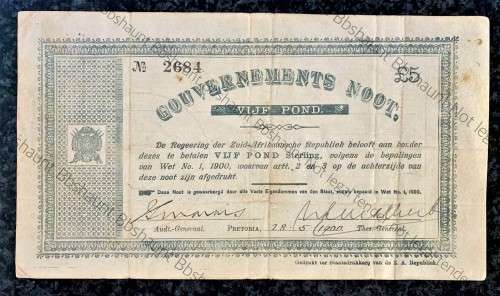 № 2684
£5
GOUVERNEMENTS NOOT.
VIJF POND.
De Regeering der Zuid-Afrikaansche Republiek belooft aan houder
dezes te betalen VIJF POND Sterling, volgens de bepalingen
van Wet No. 1, 1900, waarvan artt. 2 en 3 op de achterzijde van
deze noot zijn afgedrukt.
Deze Noot is gewaarborgd door alle Vaste Eigendommen van den Staat, zooals bepaald in Wet No. 1, 1900.
Audt.-Generaal. PRETORIA, 28 - 5 - 1900 Thes.-Generaal.
Gedrukt ter Staatsdrukkerij van de Z. A. Republiek.
Bbshaunt Not legal tender